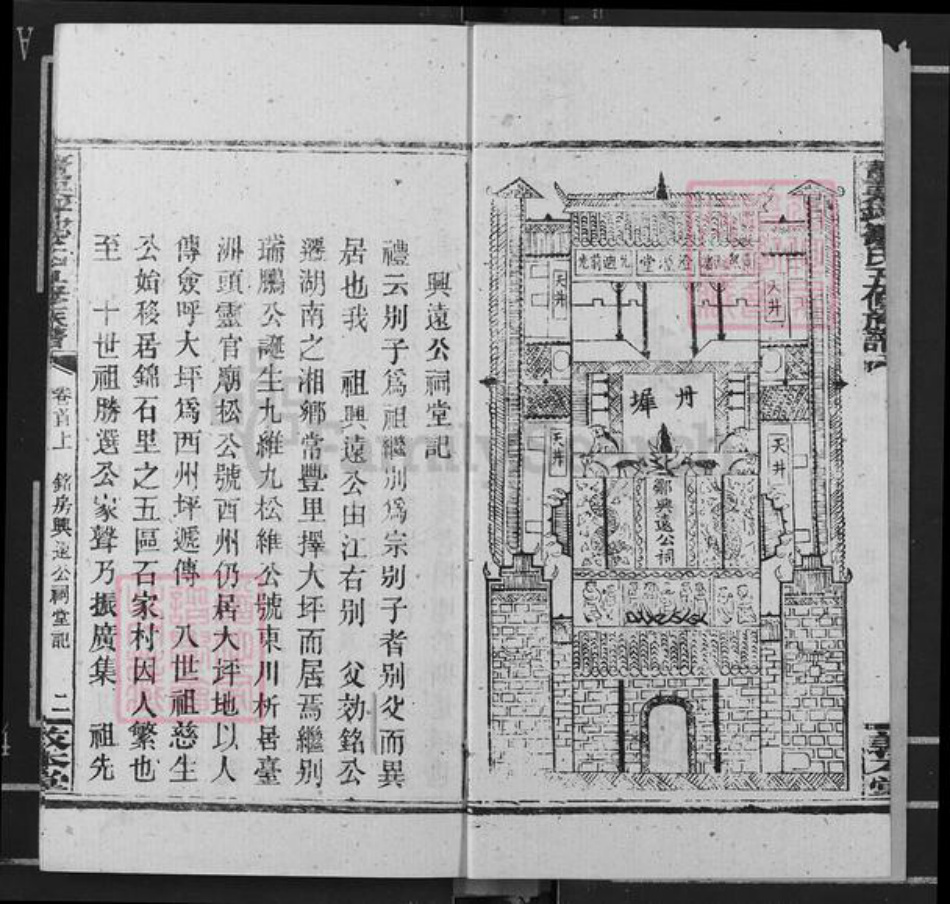 天井
天井
丹墀
天井
天井
鄒興遠公祠
興遠公祠堂記
禮云别子爲祖繼别爲宗别子者别父而異
居也我 祖興遠公由江右别 父効銘公
遷湖南之湘鄉常豐里擇大坪而居焉繼别
瑞鵬公誕生九維九松維公號東川析居臺
洲頭靈官廟松公號西州仍居大坪地以人
傳僉呼大坪爲西州坪遞傳 八世祖慈生
公始移居錦石里之五區石家村因人繁也
至 十世祖勝選公家聲乃振廣集 祖先
卷首上
銘房興遠公祠堂記
二